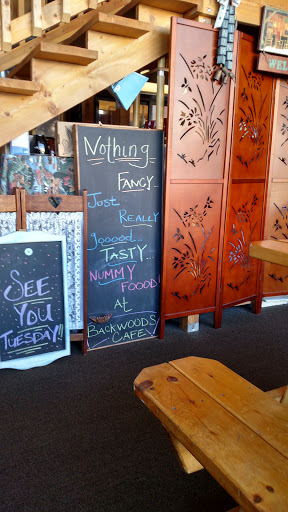 Nothing
FANCY...
Just
REALLY
gooood...
TASTY...
NUMMY
FOOOD!
AT
BACKWOODS
CAFE
SEE
YOU
TUESDAY!!
WEL